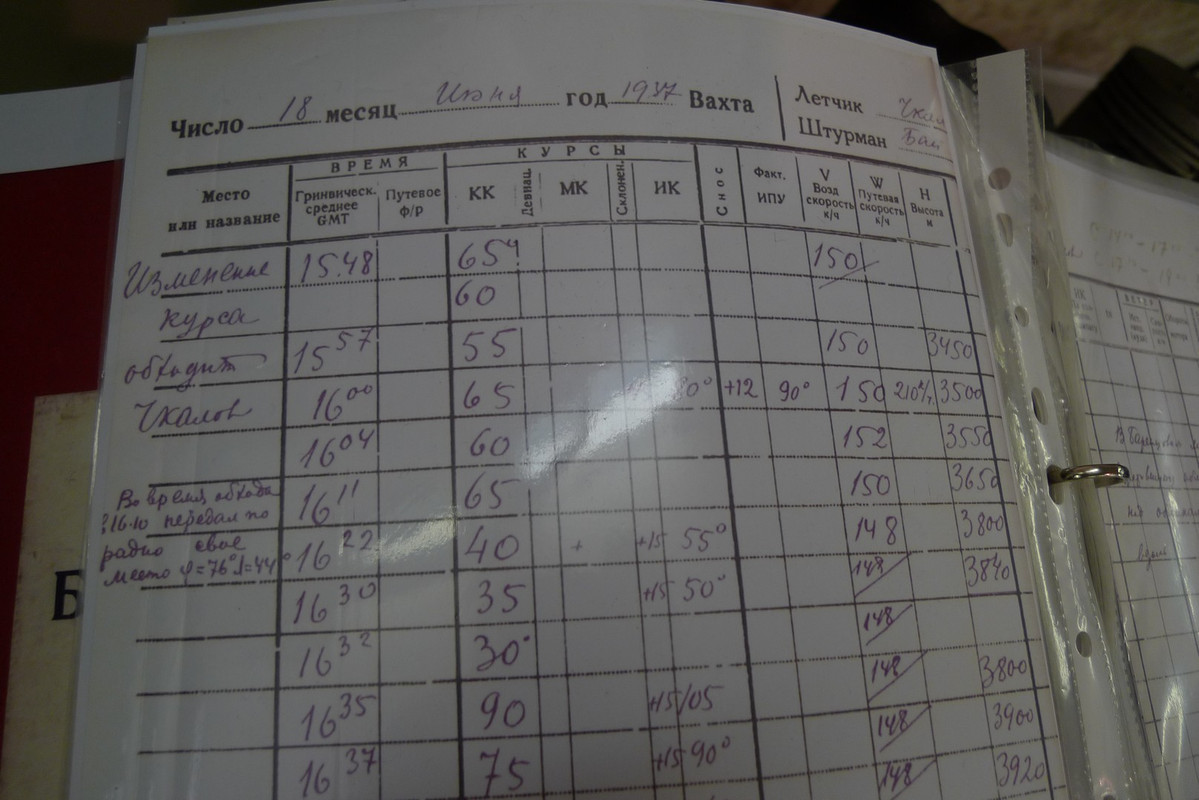 Число 18 месяц Июня год 1937 Вахта
Летчик
Штурман
Место или название
ВРЕМЯ
Гринвическ. среднее GMT
Путевое ф/р
КУРСЫ
КК
Девиац.
МК
Склонен.
ИК
Снос
Факт. ИПУ
V Возд скорость к/ч
W Путевая скорость к/ч
H Высота м
Изменение 15.48 65 150
курса 60
обходит 15 57 55 150 3450
Чкалов 16 00 65 +12 90° 150 3500
16 04 60 152 3550
Во время обхода
16.10 передал по 16 11 65 150 3650
радио свое
место φ=76° λ=44° 16 22 40 + +15 55° 148 3800
16 30 35 +15 50° 148 3840
16 32 30° 148
16 35 90 +15 105 148 3800
148 3900
16 37 75 +15 90° 148 3920
Б